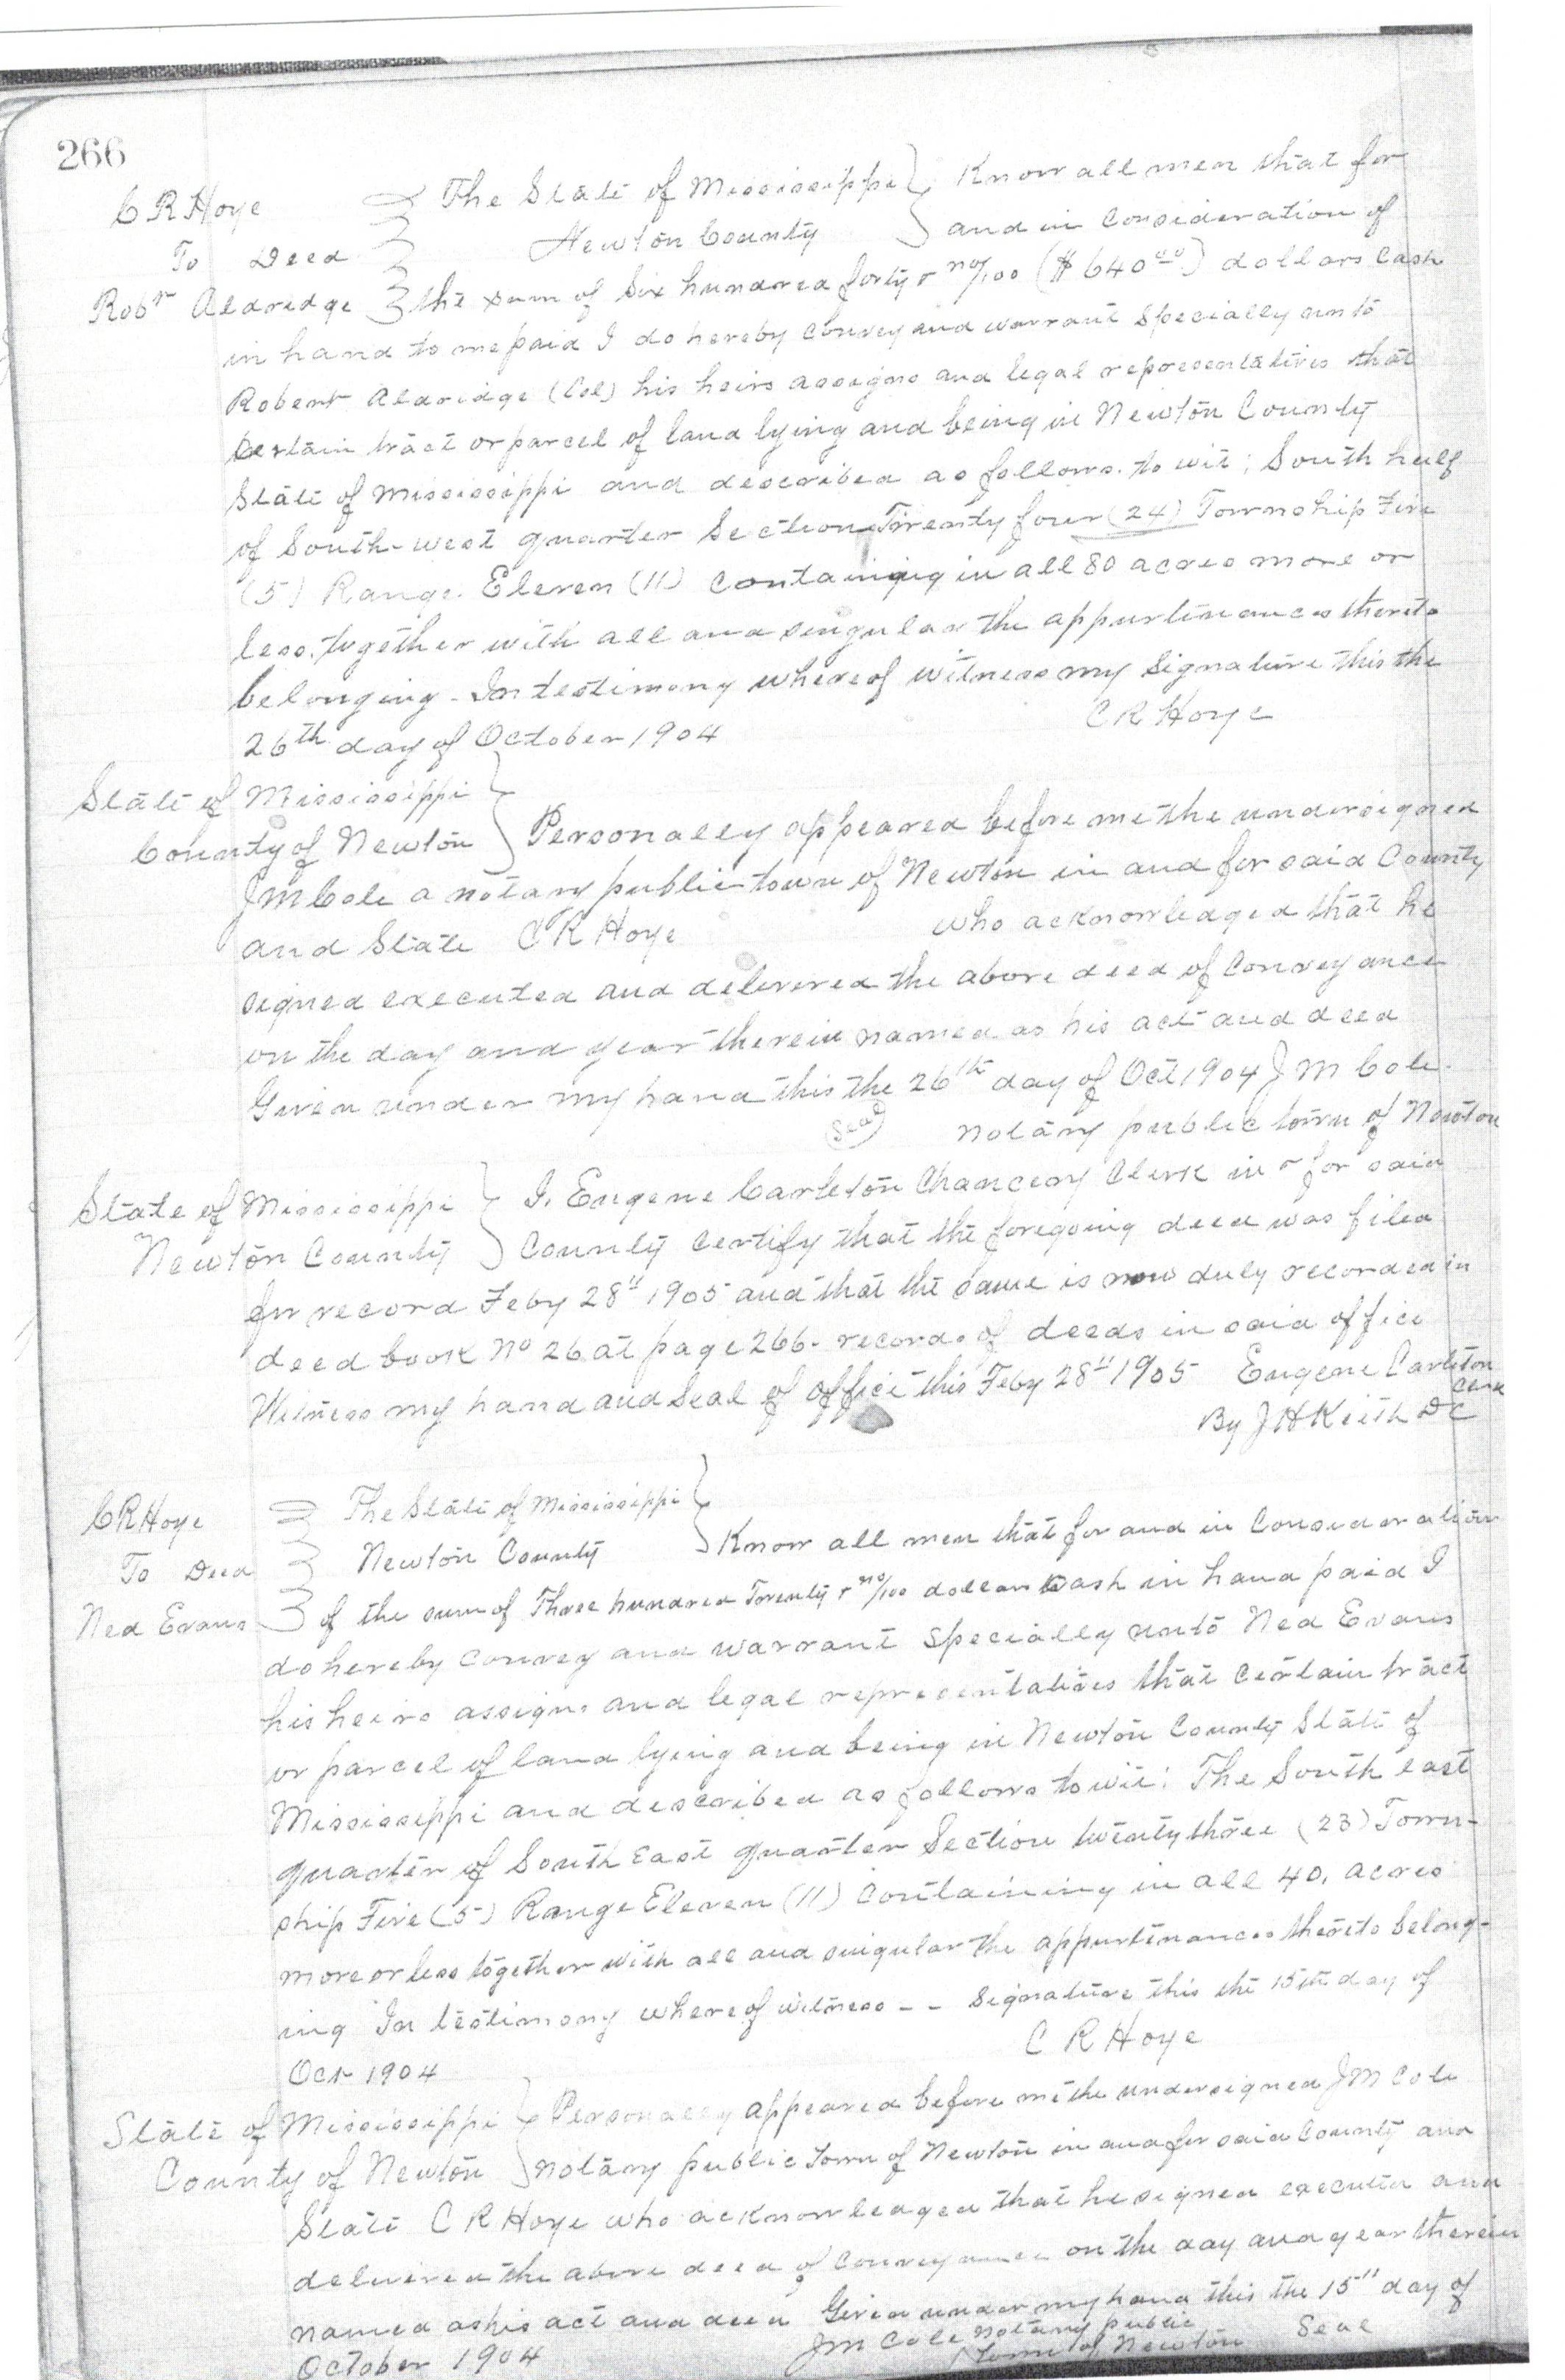 266
C R Hoye The State of Mississippi Know all men that for
To Deed Newton County and in consideration of
Robt Aldredge the sum of Six hundred forty & no/100 ($640.00) dollars Cash
in hand to me paid I do hereby convey and warrant specially unto
Robert Aldridge (Col) his heirs assigns and legal representatives that
certain tract or parcel of land lying and being in Newton County
State of Mississippi and described as follows. to wit; South half
of South-west quarter Section Twenty four (24) Township Five
(5) Range. Eleven (11) containing in all 80 acres more or
less. together with all and singular the appurtenances thereto
belonging - In testimony whereof witness my signature this the
26th day of October 1904 C R Hoye
State of Mississippi
County of Newton Personally appeared before me the undersigned
J M Cole a notary public town of Newton in and for said County
and State C R Hoye who acknowledged that he
signed executed and delivered the above deed of conveyance
on the day and year therein named as his act and deed
Given under my hand this the 26th day of Oct 1904 J M Cole
(Seal) notary public town of Newton
State of Mississippi I, Eugene Carleton Chancery Clerk in & for said
Newton County County certify that the foregoing deed was filed
for record Feby 28" 1905 and that the same is now duly recorded in
deed book No 26 at page 266. records of deeds in said office
Witness my hand and Seal of office this Feby 28" 1905 Eugene Carleton
Clerk
By J H Keith D C
C R Hoye The State of Mississippi
To Deed Newton County Know all men that for and in Consideration
Ned Evans of the sum of Three hundred Twenty & no/100 dollars Cash in hand paid I
do hereby convey and warrant specially unto Ned Evans
his heirs assigns and legal representatives that certain tract
or parcel of land lying and being in Newton County State of
Mississippi and described as follows to wit: The South east
quarter of South East quarter Section twenty three (23) Town-
ship Five (5) Range Eleven (11) Containing in all 40. acres
more or less together with all and singular the appurtenances thereto belong-
ing In testimony whereof witness - - signature this the 15th day of
Oct 1904 C R Hoye
State of Mississippi Personally appeared before me the undersigned J M Cole
County of Newton notary public Town of Newton in and for said County and
State C R Hoye who acknowledged that he signed executed and
delivered the above deed of conveyance on the day and year therein
named as his act and deed Given under my hand this the 15" day of
October 1904 J M Cole notary public Seal
Town of Newton